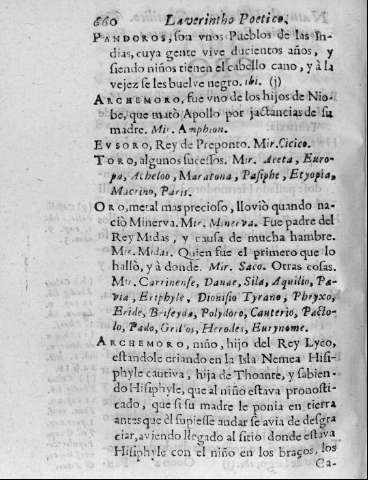 660 Laverintho Poetico.
PANDOROS, son vnos Pueblos de las In-
dias, cuya gente vive ducientos años, y
siendo niños tienen el cabello cano, y à la
vejez se les buelve negro. ibi. (j)
ARCHEMORO, fue vno de los hijos de Nio-
be, que matò Apollo por jactancias de su
madre. Mir. Amphion.
EVSORO, Rey de Preponto. Mir. Cicico.
TORO, algunos sucessos. Mir. Aeeta, Euro-
pa, Acheloo, Maratona, Pasiphe, Etyopia,
Macrino, Paris.
ORO, metal mas precioso, lloviò quando na-
ciò Minerva. Mir. Minerva. Fue padre del
Rey Midas, y causa de mucha hambre.
Mir. Midas. Quien fue el primero que lo
hallò, y à donde. Mir. Saco. Otras cosas.
Mir. Carrinense, Danae, Sila, Aquilio, Pa-
via, Eriphyle, Dionisio Tyrano, Phryxo,
Eride, Briseyda, Polydoro, Cauterio, Pacto-
lo, Pado, Grifos, Herodes, Eurynome.
ARCHEMORO, niño, hijo del Rey Lyco,
estandole criando en la Isla Nemea Hisi-
phyle cautiva, hija de Thoante, y sabien-
do Hisiphyle, que al niño estava pronosti-
cado, que si su madre le ponia en tierra
antes que èl supiesse andar se avia de desgra
ciar, aviendo llegado al sitio donde estava
Hisiphyle con el niño en los braços, los
Ca-